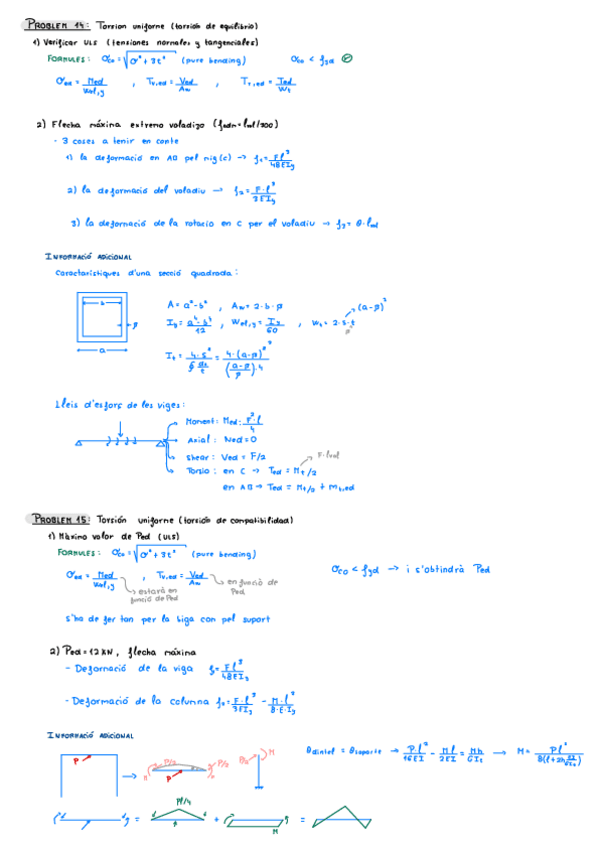 PROBLEM 14: Torsion uniforme (torsión de equilibrio)
1) Verificar ULS (tensiones normales y tangenciales)
FORMULES: σco = √σ² + 3τ² (pure bending) σco < fyd
σed = Med/Wel,y , Tv,ed = Ved/Aw , Tt,ed = Ted/Wt
2) Flecha máxima extremo voladizo (fadm = lvol/300)
- 3 coses a tenir en conte
1) la deformació en AB pel mig (c) → f1 = Fl³/48EIy
2) la deformació del voladiu → f2 = F·l³/3EIy
3) la deformació de la rotacio en C per el voladiu → f3 = θ·lvol
INFORMACIÓ ADICIONAL
Característiques d'una secció quadrada:
b
a
A = a² - b² , Aw = 2·b·
Iy = a⁴-b⁴/12 , Wel,y = Iy/60 , Wt = 2·S·t
It = 4·S²/∮ds/t
Lleis d'esforç de les vigues:
Axial: Ned = 0
Shear: Ved = F/2
Torsio: en C → Ted = Mt/2
F·lvol
en AB → Ted = Mt/2 + Mt,ed
PROBLEM 15: Torsión uniforme (torsión de compatibilidad)
1) Màximo valor de Ped (ULS)
FORMULES: σco = √σ² + 3τ² (pure bending)
σed = Med/Wel,y , Tv,ed = Ved/Aw
σco < fyd → i s'obtindrà Ped
estarà en funció de Ped
en funció de Ped
s'ha de fer tan per la biga com pel suport
2) Ped = 12 KN, flecha máxima
- Deformació de la viga f = Fl³/48EIy
- Deformació de la columna f2 = F·l³/3EIy - M·l²/8·E·Iy
INFORMACIÓ ADICIONAL
P
P/2
P
P/2
M
θdintel = θsoporte → Pl²/16EI - Ml/2EI = Mh/GIt → M =
Pl/4
= + =
M